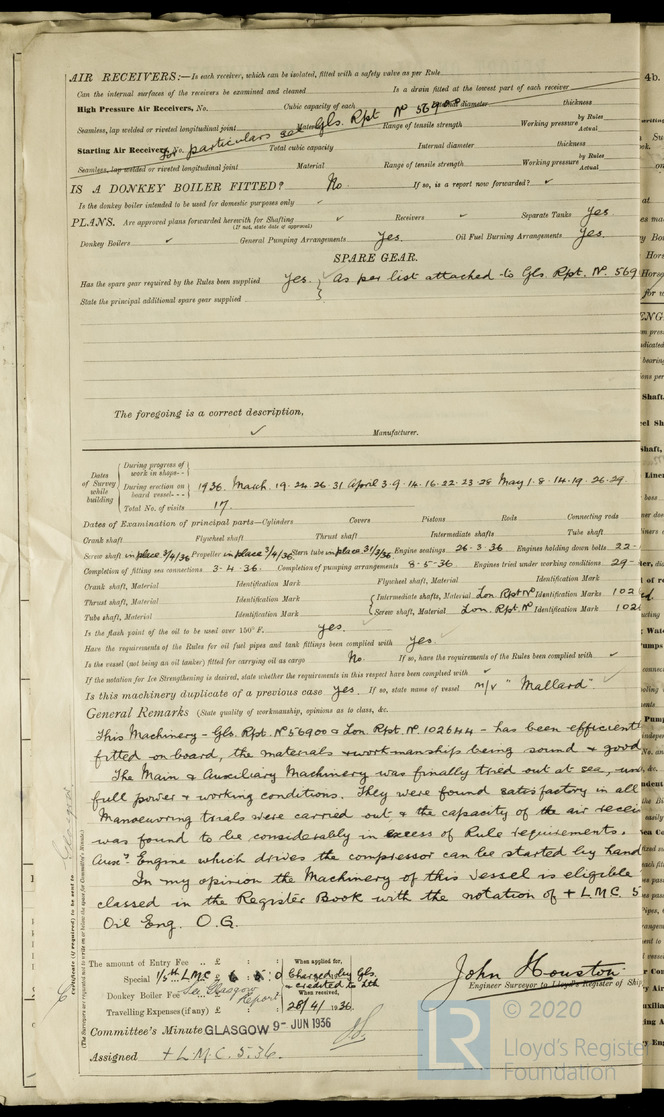 AIR RECEIVERS:—Is each receiver, which can be isolated, fitted with a safety valve as per Rule
Can the internal surfaces of the receivers be examined and cleaned Is a drain fitted at the lowest part of each receiver
High Pressure Air Receivers, No. Cubic capacity of each Internal diameter thickness
Seamless, lap welded or riveted longitudinal joint Material Range of tensile strength Working pressure by Rules Actual
For particulars see Gls. Rpt Nº 56900
Starting Air Receivers, No. Total cubic capacity Internal diameter thickness
Seamless, lap welded or riveted longitudinal joint Material Range of tensile strength Working pressure by Rules Actual
IS A DONKEY BOILER FITTED? No If so, is a report now forwarded? ✓
Is the donkey boiler intended to be used for domestic purposes only ✓
PLANS. Are approved plans forwarded herewith for Shafting ✓ Receivers ✓ Separate Tanks Yes
(If not, state date of approval)
Donkey Boilers ✓ General Pumping Arrangements Yes. Oil Fuel Burning Arrangements Yes.
SPARE GEAR.
Has the spare gear required by the Rules been supplied Yes. ✓ As per list attached to Gls. Rpt. Nº. 569
State the principal additional spare gear supplied
The foregoing is a correct description,
✓ Manufacturer.
Dates of Survey while building
During progress of work in shops - -
During erection on board vessel - - - 1936. March. 19. 24. 26. 31 April 3. 9. 14. 16. 22. 23. 28 May 1. 8. 14. 19. 26. 29
Total No. of visits 17.
Dates of Examination of principal parts—Cylinders Covers Pistons Rods Connecting rods
Crank shaft Flywheel shaft Thrust shaft Intermediate shafts Tube shaft
Screw shaft in place 3/4/36 Propeller in place 3/4/36 Stern tube in place 31/3/36 Engine seatings 26.3.36 Engines holding down bolts 22-
Completion of fitting sea connections 3.4.36. Completion of pumping arrangements 8.5.36 Engines tried under working conditions 29-
Crank shaft, Material Identification Mark Flywheel shaft, Material Identification Mark
Thrust shaft, Material Identification Mark Intermediate shafts, Material Lon Rpt Nº Identification Marks 102
Tube shaft, Material Identification Mark Screw shaft, Material Lon. Rpt. Nº Identification Mark 102
Is the flash point of the oil to be used over 150°F. Yes.
Have the requirements of the Rules for oil fuel pipes and tank fittings been complied with Yes
Is the vessel (not being an oil tanker) fitted for carrying oil as cargo No If so, have the requirements of the Rules been complied with ✓
If the notation for Ice Strengthening is desired, state whether the requirements in this respect have been complied with ✓
Is this machinery duplicate of a previous case Yes. If so, state name of vessel M/V "Mallard".
General Remarks (State quality of workmanship, opinions as to class, &c.
This Machinery - Gls. Rpt. Nº 56900 & Lon Rpt. Nº. 102644 - has been efficient
fitted on board, the materials & workmanship being sound & good
The Main & Auxiliary Machinery was finally tried out at sea, un
full power & working conditions. They were found satisfactory in all
Manoeuvring trials were carried out & the capacity of the air recei
was found to be considerably in excess of Rule requirements.
Auxy Engine which drives the compressor can be started by hand
In my opinion the Machinery of this vessel is eligible
classed in the Register Book with the notation of + L.M.C. 5
Oil Eng. O.G.
Certificate (if required) to be sent to
(The Surveyors are requested not to write on or below the space for Committee's Minute.)
The amount of Entry Fee .. £ : :
Special 1/5th LMC £ 6 : 5 : 0
Donkey Boiler Fee See Glasgow Report
Travelling Expenses (if any) £ : :
When applied for,
Charged by Gls.
& credited to Lth
When received,
28/4/1936.
John Houston.
Engineer Surveyor to Lloyd's Register of Ship
Committee's Minute GLASGOW 9-JUN 1936
Assigned + L.M.C. 5.36.
4b.
LR
© 2020
Lloyd's Register
Foundation